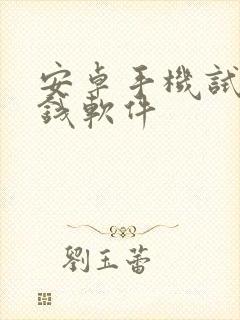 安卓手機試
錢軟件
劉玉蕾